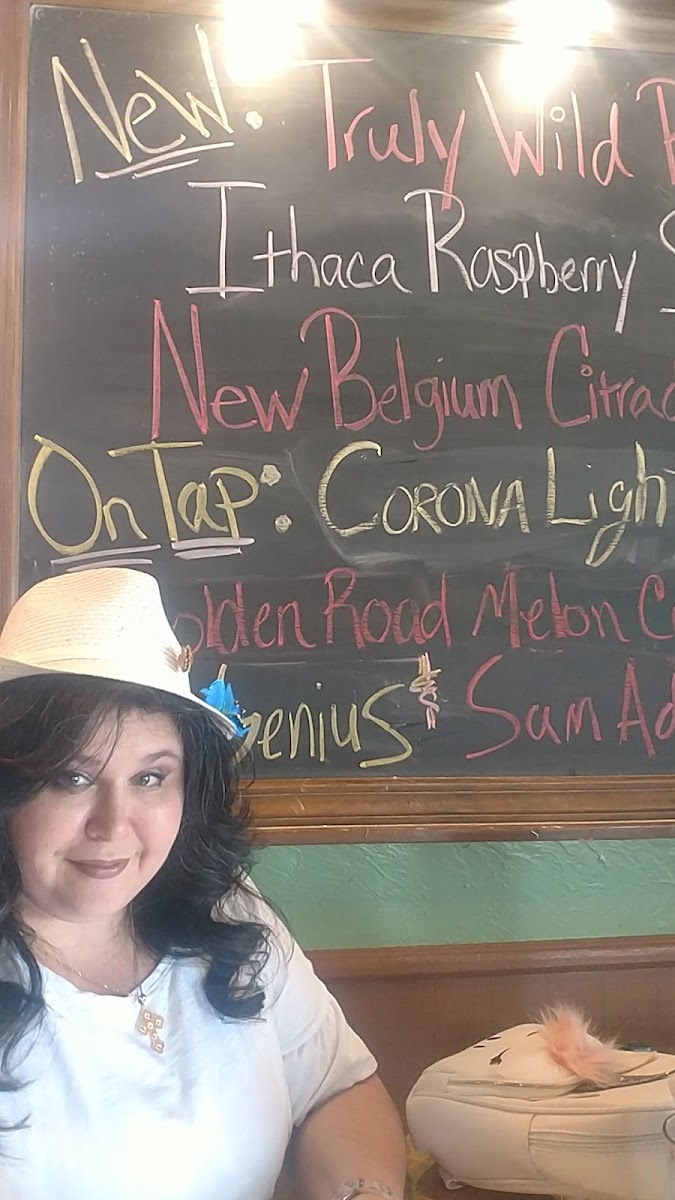 New: Truly Wild
Ithaca Raspberry
New Belgium Citrad
On Tap: Corona Ligh
olden Road Melon C
genius & Sam Ad